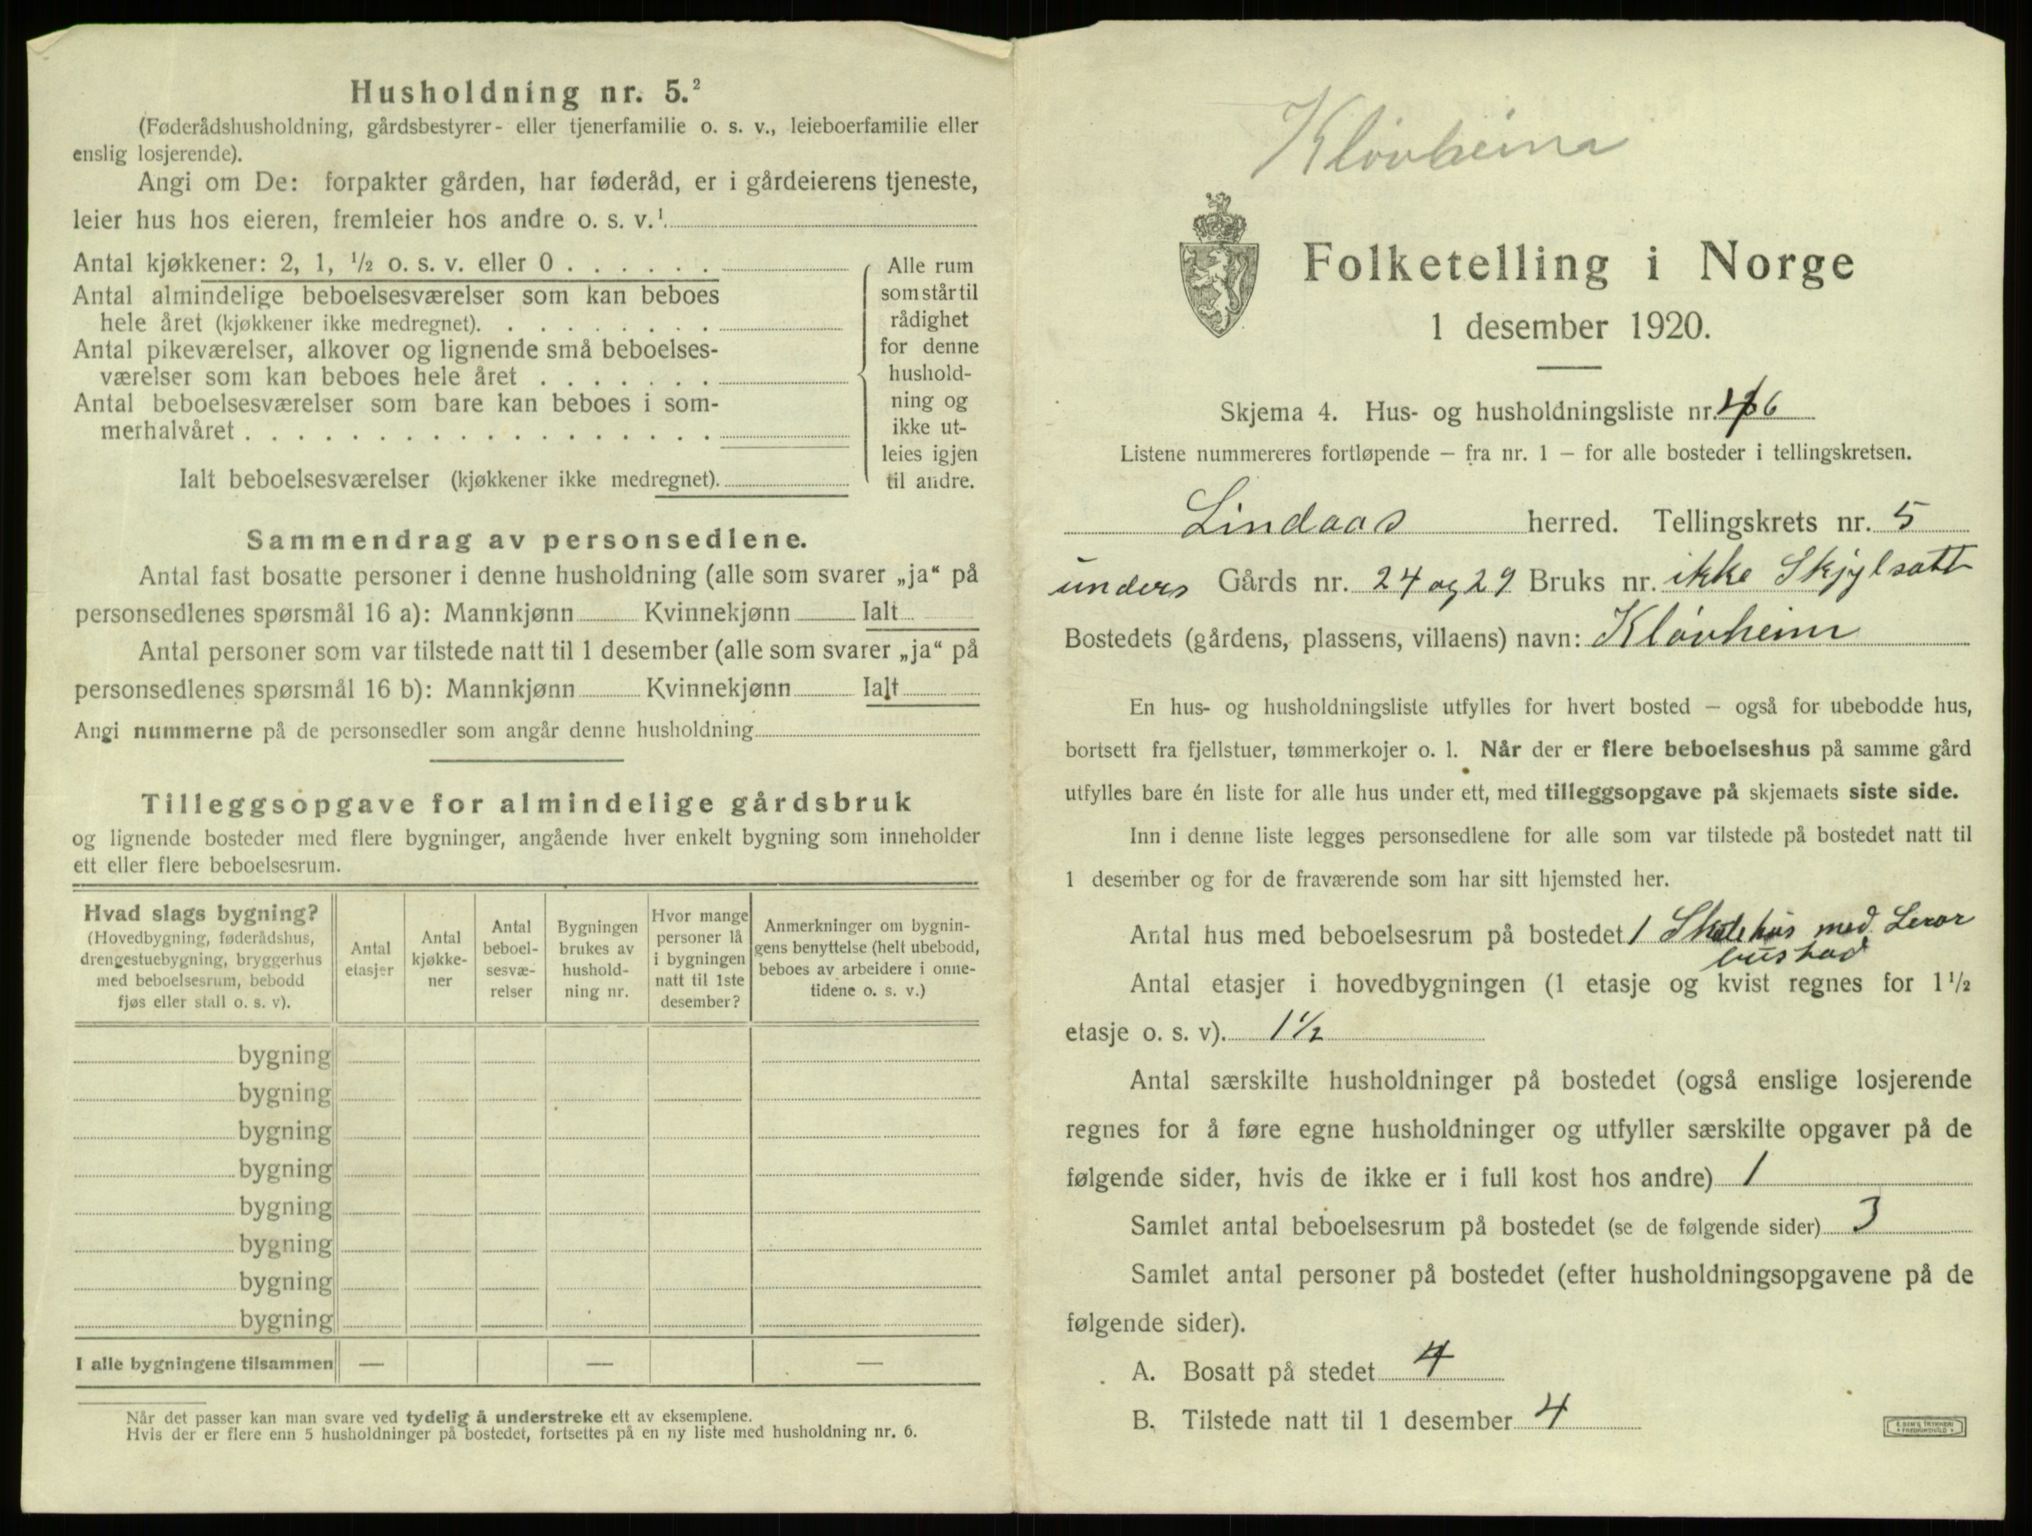 Husholdning nr. 5.²
(Føderådshusholdning, gårdsbestyrer- eller tjenerfamilie o. s. v., leieboerfamilie eller
enslig losjerende).
Angi om De: forpakter gården, har føderåd, er i gårdeierens tjeneste,
leier hus hos eieren, fremleier hos andre o. s. v.¹
Antal kjøkkener: 2, 1, ½ o. s. v. eller 0 . . . . . .
Antal almindelige beboelsesværelser som kan beboes
hele året (kjøkkener ikke medregnet). . . . . . . . .
Antal pikeværelser, alkover og lignende små beboelses-
værelser som kan beboes hele året . . . . . . .
Antal beboelsesværelser som bare kan beboes i som-
merhalvåret . . . . . . . . . . . . . . . . . .
Ialt beboelsesværelser (kjøkkener ikke medregnet).
Alle rum
som står til
rådighet
for denne
hushold-
ning og
ikke ut-
leies igjen
til andre.
Sammendrag av personsedlene.
Antal fast bosatte personer i denne husholdning (alle som svarer „ja“ på
personsedlenes spørsmål 16 a): Mannkjønn Kvinnekjønn Ialt
Antal personer som var tilstede natt til 1 desember (alle som svarer „ja“ på
personsedlenes spørsmål 16 b): Mannkjønn Kvinnekjønn Ialt
Angi nummerne på de personsedler som angår denne husholdning
Tilleggsopgave for almindelige gårdsbruk
og lignende bosteder med flere bygninger, angående hver enkelt bygning som inneholder
ett eller flere beboelsesrum.
Hvad slags bygning?
(Hovedbygning, føderådshus,
drengestuebygning, bryggerhus
med beboelsesrum, bebodd
fjøs eller stall o. s. v).
Antal
etasjer
Antal
kjøkke-
ner
Antal
beboel-
sesvæ-
relser
Bygningen
brukes av
hushold-
ning nr.
Hvor mange
personer lå
i bygningen
natt til 1ste
desember?
Anmerkninger om bygnin-
gens benyttelse (helt ubebodd,
beboes av arbeidere i onne-
tidene o. s. v.)
bygning
bygning
bygning
bygning
bygning
bygning
bygning
bygning
I alle bygningene tilsammen — — —
Når det passer kan man svare ved tydelig å understreke ett av eksemplene.
Hvis der er flere enn 5 husholdninger på bostedet, fortsettes på en ny liste med husholdning nr. 6.
Kløvheim
Folketelling i Norge
1 desember 1920.
Skjema 4. Hus- og husholdningsliste nr. 6
Listene nummereres fortløpende – fra nr. 1 – for alle bosteder i tellingskretsen.
Lindaas herred. Tellingskrets nr. 5
unders Gårds nr. 24 og 29 Bruks nr. ikke Skjylsatt
Bostedets (gårdens, plassens, villaens) navn: Kløvheim
En hus- og husholdningsliste utfylles for hvert bosted – også for ubebodde hus,
bortsett fra fjellstuer, tømmerkojer o. l. Når der er flere beboelseshus på samme gård
utfylles bare én liste for alle hus under ett, med tilleggsopgave på skjemaets siste side.
Inn i denne liste legges personsedlene for alle som var tilstede på bostedet natt til
1 desember og for de fraværende som har sitt hjemsted her.
Antal hus med beboelsesrum på bostedet 1 Skolehus med Lærer
bustad
Antal etasjer i hovedbygningen (1 etasje og kvist regnes for 1½
etasje o. s. v). 1½
Antal særskilte husholdninger på bostedet (også enslige losjerende
regnes for å føre egne husholdninger og utfyller særskilte opgaver på de
følgende sider, hvis de ikke er i full kost hos andre) 1
Samlet antal beboelsesrum på bostedet (se de følgende sider) 3
Samlet antal personer på bostedet (efter husholdningsopgavene på de
følgende sider).
A. Bosatt på stedet 4
B. Tilstede natt til 1 desember 4